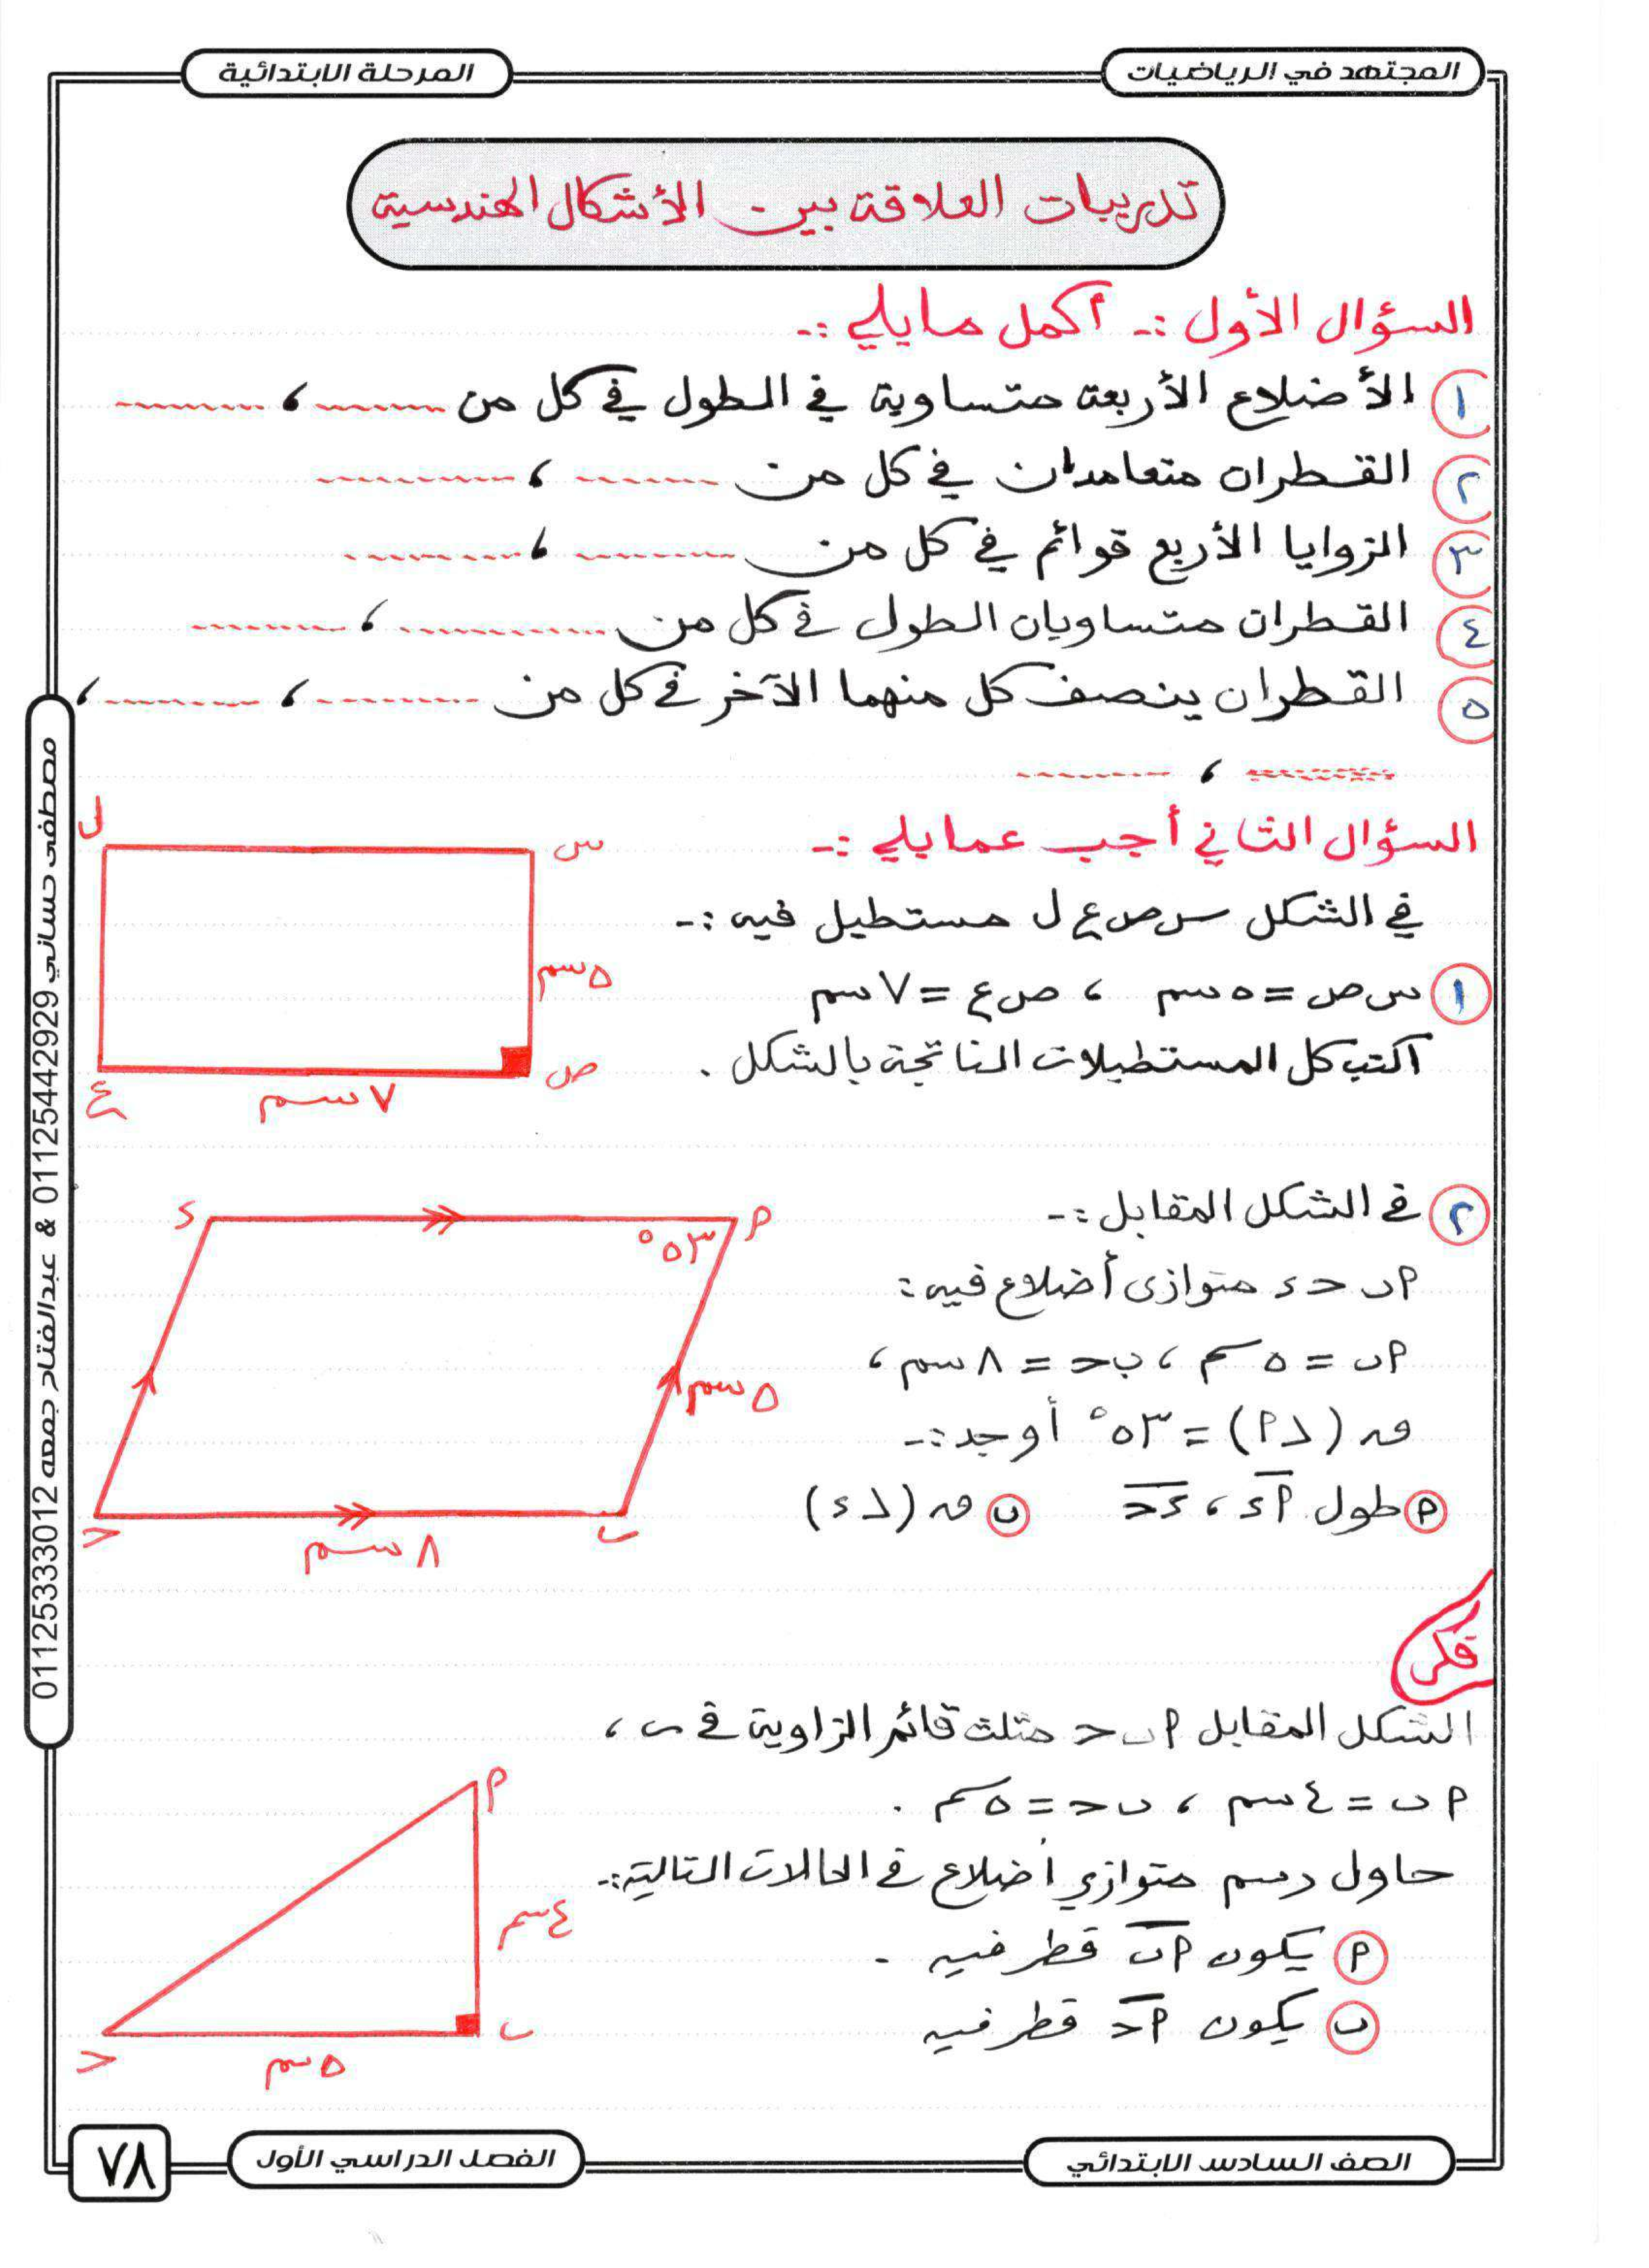 المجتهد في الرياضيات
المرحلة الابتدائية
تدريبات العلاقة بين الأشكال الهندسية
السؤال الأول :- أكمل ما يلي :-
١ الأضلاع الأربعة متساوية في الطول في كل من ........ ، ........
٢ القطران متعامدان في كل من ........ ، ........
٣ الزوايا الأربع قوائم في كل من ........ ، ........
٤ القطران متساويان الطول في كل من ........ ، ........
٥ القطران ينصف كل منهما الآخر في كل من ........ ، ........ ،
........ ، ........
السؤال الثاني أجب عما يلي :-
في الشكل س ص ع ل مستطيل فيه :-
١ س ص = ٥ سم ، ص ع = ٧ سم
اكتب كل المستطيلات الناتجة بالشكل .
ل
س
٥ سم
ص
٧ سم
ع
٢ في الشكل المقابل :-
P ب ح د متوازى أضلاع فيه :
P ب = ٥ سم ، ب ح = ٨ سم ،
ق (P ∠) = ٥٣° أوجد :-
P طول P د ، د ح ب ق (∠ د)
د
P
٥٣°
٥ سم
ح
ب
٨ سم
فكر
الشكل المقابل P ب ح مثلث قائم الزاوية في ب ،
P ب = ٤ سم ، ب ح = ٥ سم .
حاول رسم متوازي أضلاع في الحالات التالية :-
P يكون P ب قطر فيه .
ب يكون P ح قطر فيه
P
٤ سم
ب
٥ سم
ح
مصطفى حساني 01125442929 & عبدالفتاح جمعه 01125333012
الصف السادس الابتدائي
الفصل الدراسي الأول
٧٨